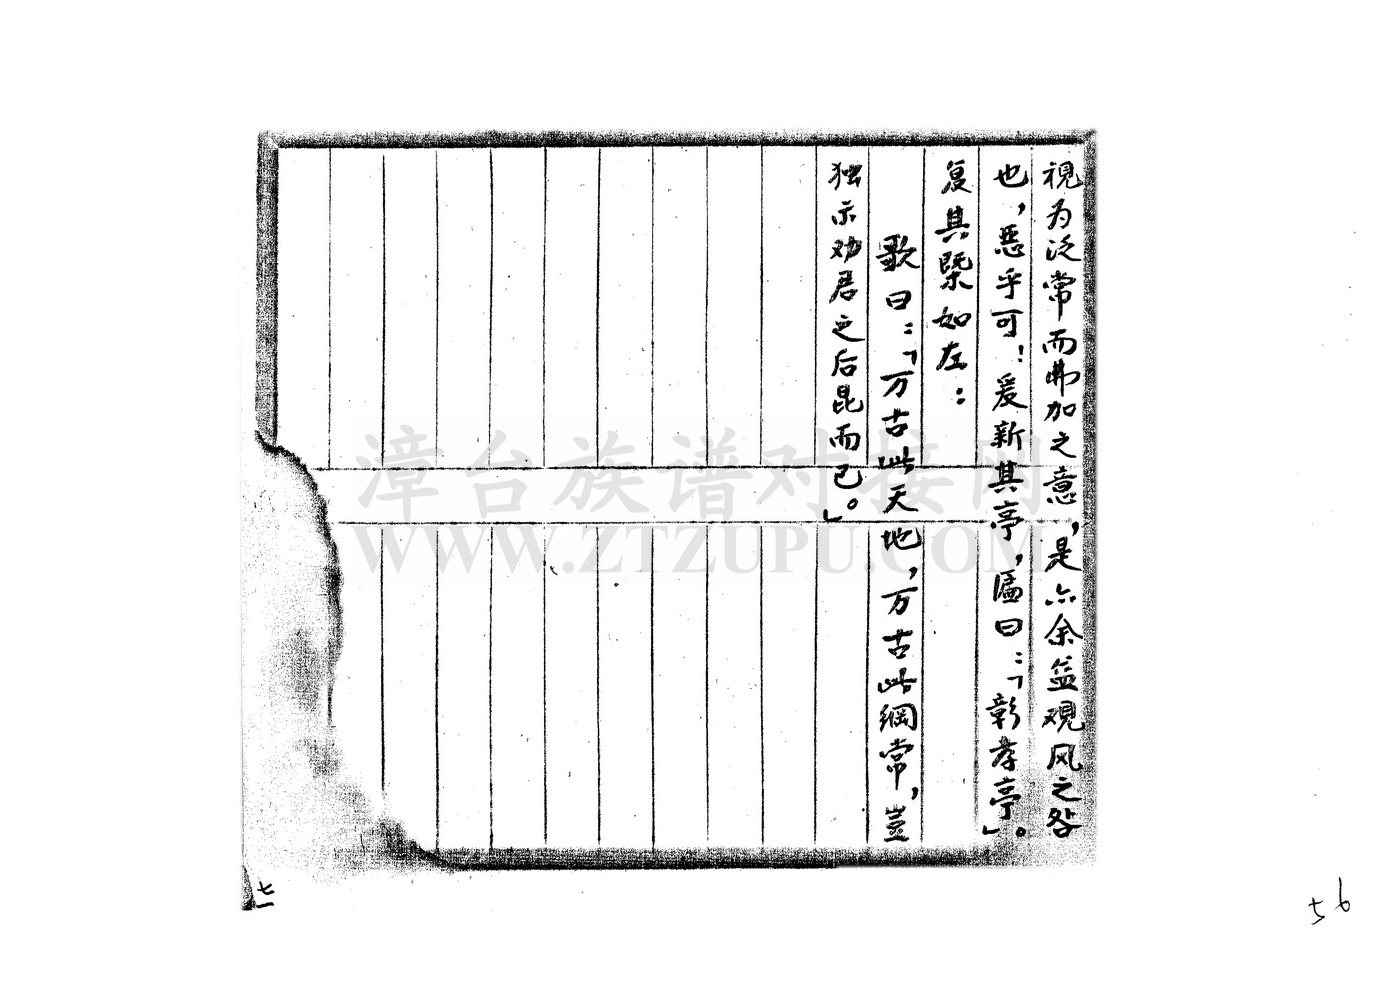 視为泛常而弗加之意，是六余益观风之咎
也，恶乎可！爰新其亭，匾曰：「彰孝亭」。
复其槩如左：
歌曰：「万古此天地，万古此綱常，豈
独示劝居之后昆而已。」
漳台族谱对接网
WWW.ZTZUPU.COM
七一
56